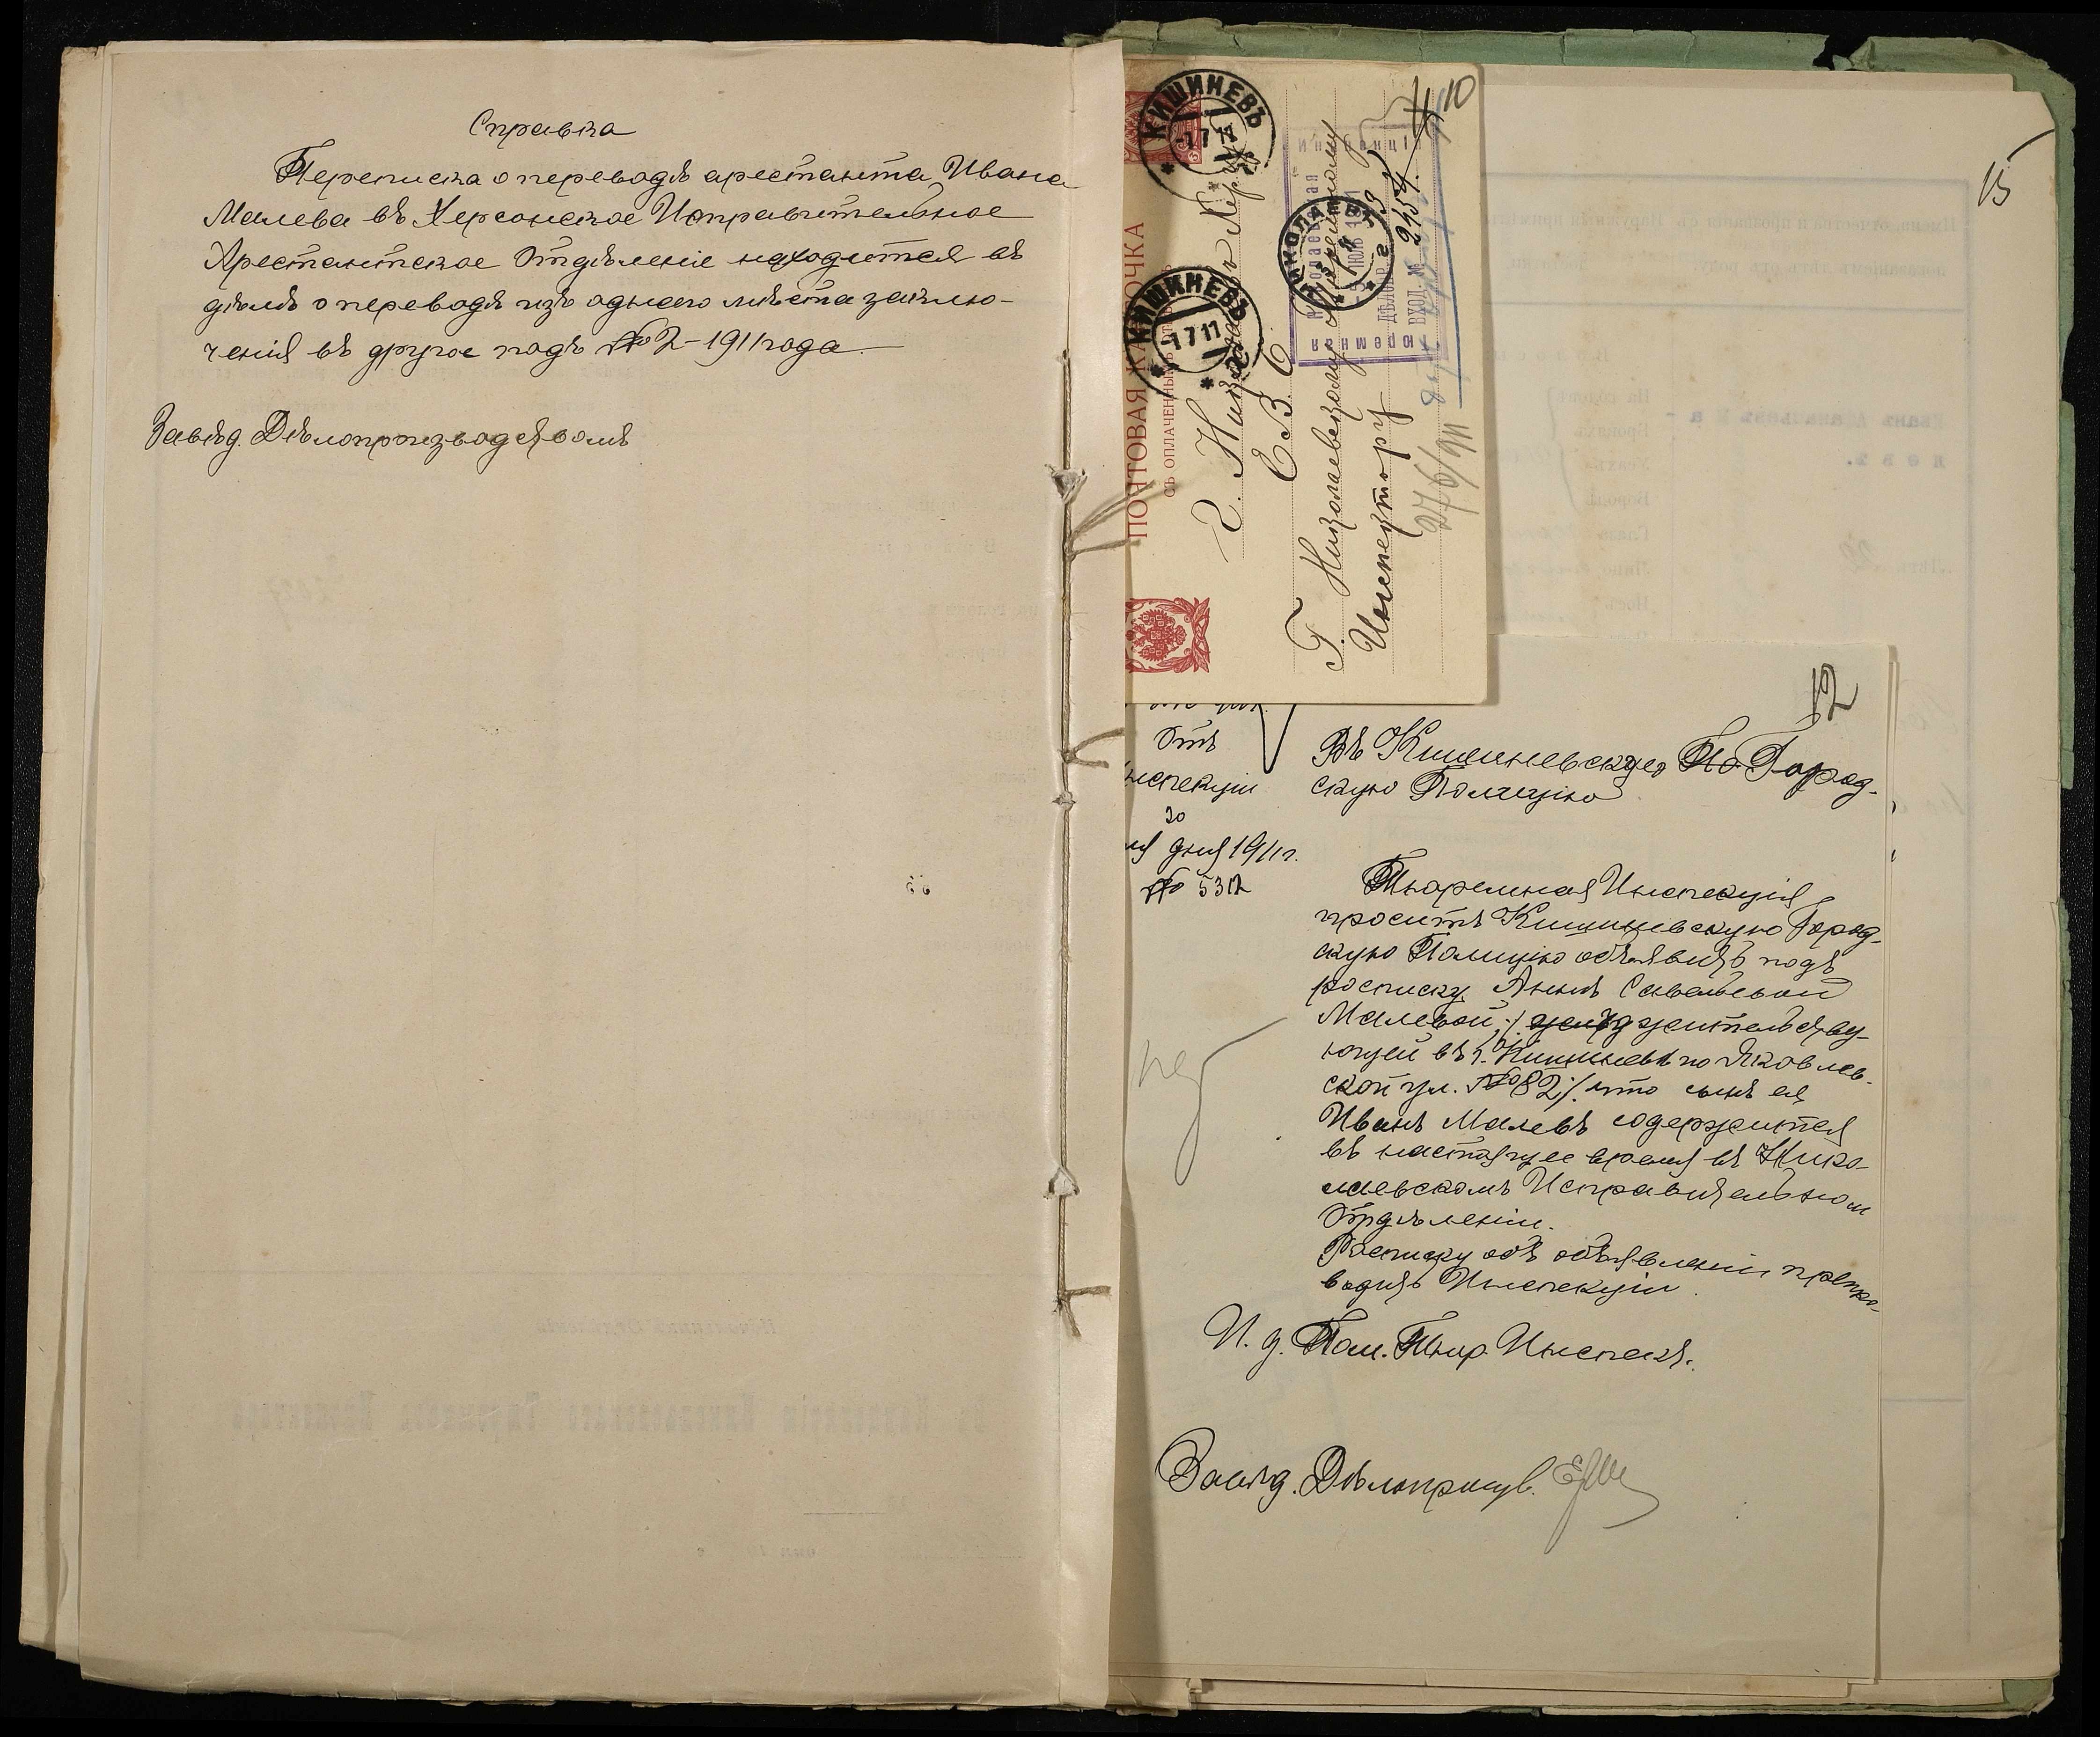 Справка
Переписка о переводѣ арестанта Ивана
Малева въ Херсонское Исправительное
Арестантское Отдѣленіе находится въ
дѣлѣ о переводѣ изъ одного мѣста заклю-
ченія въ другое подъ № 2-1911 года.
Завѣд. Дѣлопроизводствомъ
ПОЧТОВАЯ КАРТОЧКА
СЪ ОПЛАЧЕННЫМЪ
КИШИНЕВЪ
1 7 11
КИШИНЕВЪ
1 7 11
НИКОЛАЕВЪ
г. Николаевъ Херс.
Е. В. Б.
Г. Николаевскому Тюремному
Инспектору
Николаевская
Тюремная
Инспекція
ВХОД. №
2454
10
15
12
Отъ
нспекціи
30
дня 1911 г.
№ 5312
Въ Кишиневскую Город-
скую Полицію
Тюремная Инспекція
проситъ Кишиневскую Город-
скую Полицію объявить подъ
росписку Аннѣ Савельевой
Малевой, ·/. жительству-
ющей въ г. Кишиневѣ по Яковлев-
ской ул. № 82 ·/. что сынъ ея
Иванъ Малевъ содержится
въ настоящее время въ Нико-
лаевскомъ Исправительном
Отдѣленіи.
Росписку объ объявленіи препро-
водить Инспекціи.
И. д. Пом. Тюр. Инспект.
Завѣд. Дѣлопроизв.